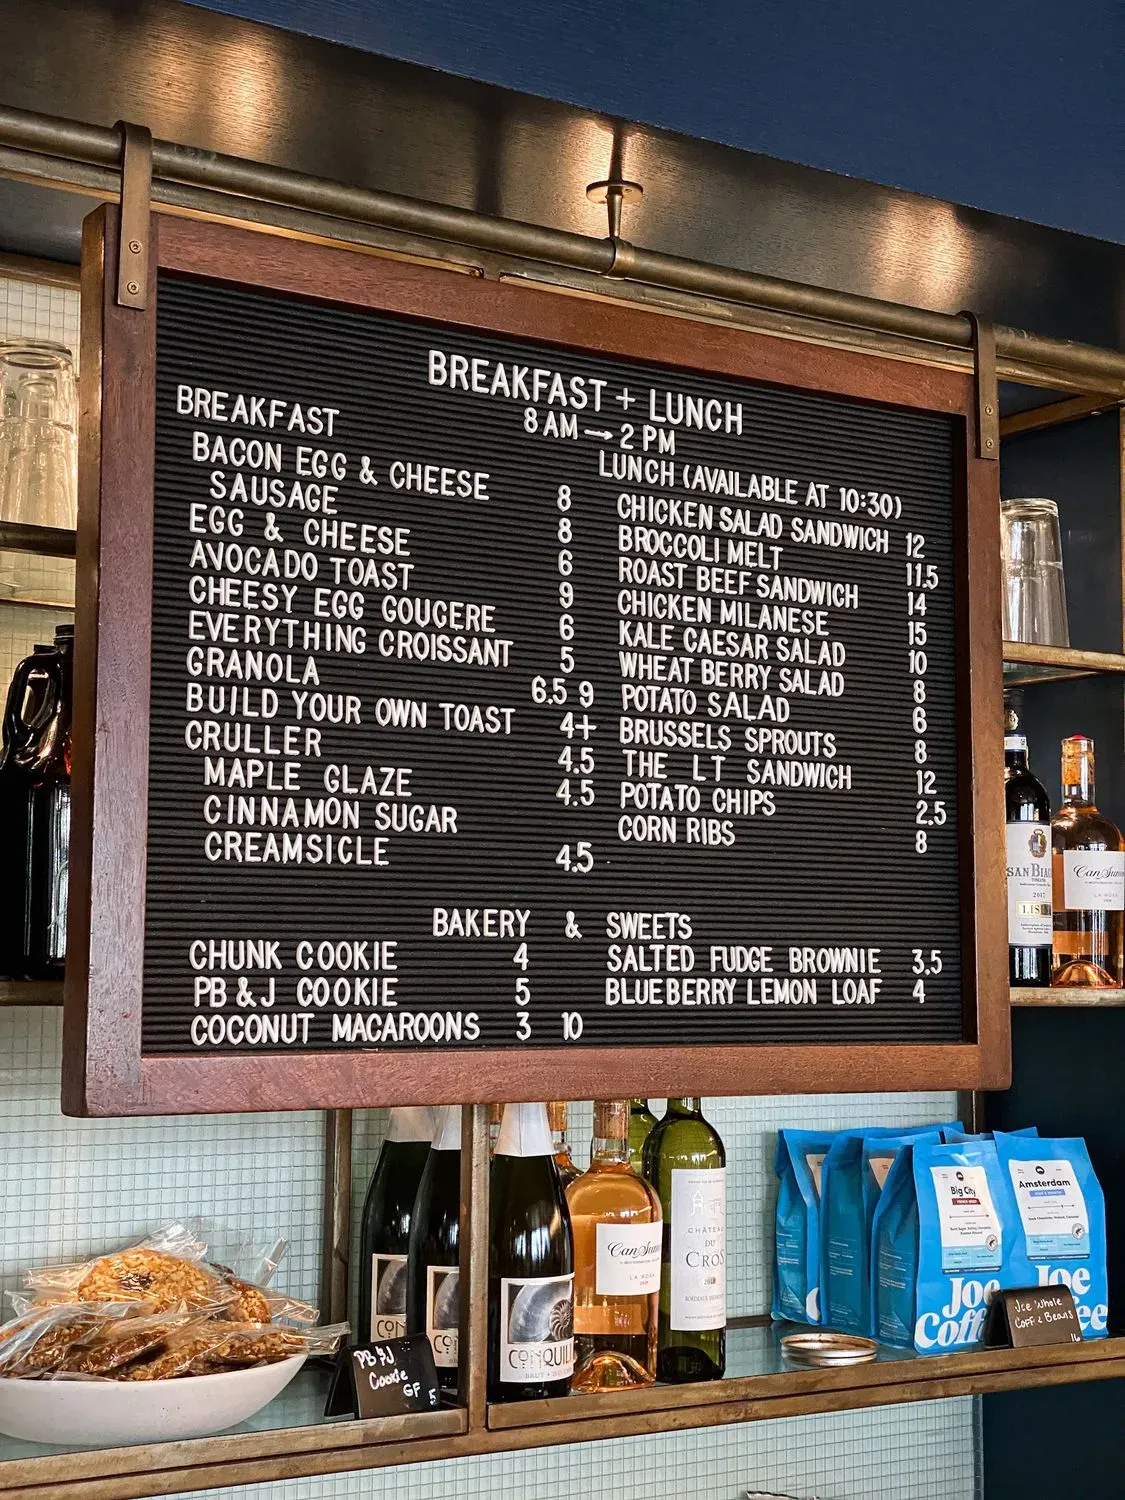 BREAKFAST + LUNCH
8 AM → 2 PM
BREAKFAST
BACON EGG & CHEESE 8
SAUSAGE 8
EGG & CHEESE 6
AVOCADO TOAST 9
CHEESY EGG GOUGERE 6
EVERYTHING CROISSANT 5
GRANOLA 6.5 9
BUILD YOUR OWN TOAST 4+
CRULLER 4.5
MAPLE GLAZE 4.5
CINNAMON SUGAR
CREAMSICLE 4.5
LUNCH (AVAILABLE AT 10:30)
CHICKEN SALAD SANDWICH 12
BROCCOLI MELT 11.5
ROAST BEEF SANDWICH 14
CHICKEN MILANESE 15
KALE CAESAR SALAD 10
WHEAT BERRY SALAD 8
POTATO SALAD 6
BRUSSELS SPROUTS 8
THE LT SANDWICH 12
POTATO CHIPS 2.5
CORN RIBS 8
BAKERY & SWEETS
CHUNK COOKIE 4
PB & J COOKIE 5
COCONUT MACAROONS 3 10
SALTED FUDGE BROWNIE 3.5
BLUEBERRY LEMON LOAF 4
SAN
2017
Can
LA ROSA
PB & J
Cookie
GF 5
CONQUIL
BRUT
Can
LA ROSA
CHÂTEAU
DU
CROS
Big City
Joe
Coff
Amsterdam
Joe
ee
Joe Whole
Coffee Beans
16